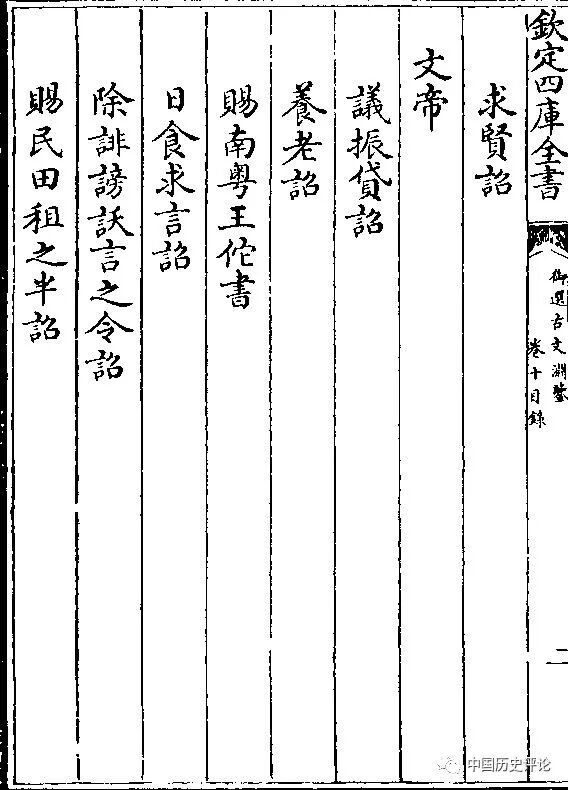 欽定四庫全書
御選古文淵鑒
卷十目錄
二
求賢詔
文帝
議振貸詔
養老詔
賜南粤王佗書
日食求言詔
除誹謗訞言之令詔
賜民田租之半詔
中国历史评论